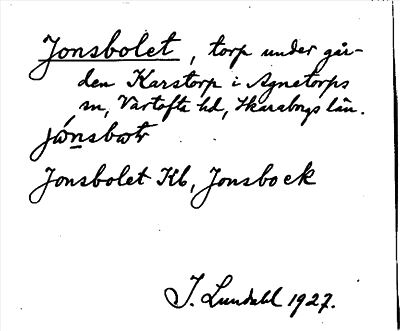 Jonsbolet, torp under går-
den Karstorp i Agnetorps
sn, Vartofta hd, Skaraborgs län.
Jonsbolet Kb, Jonsbock
J. Lundahl 1927.